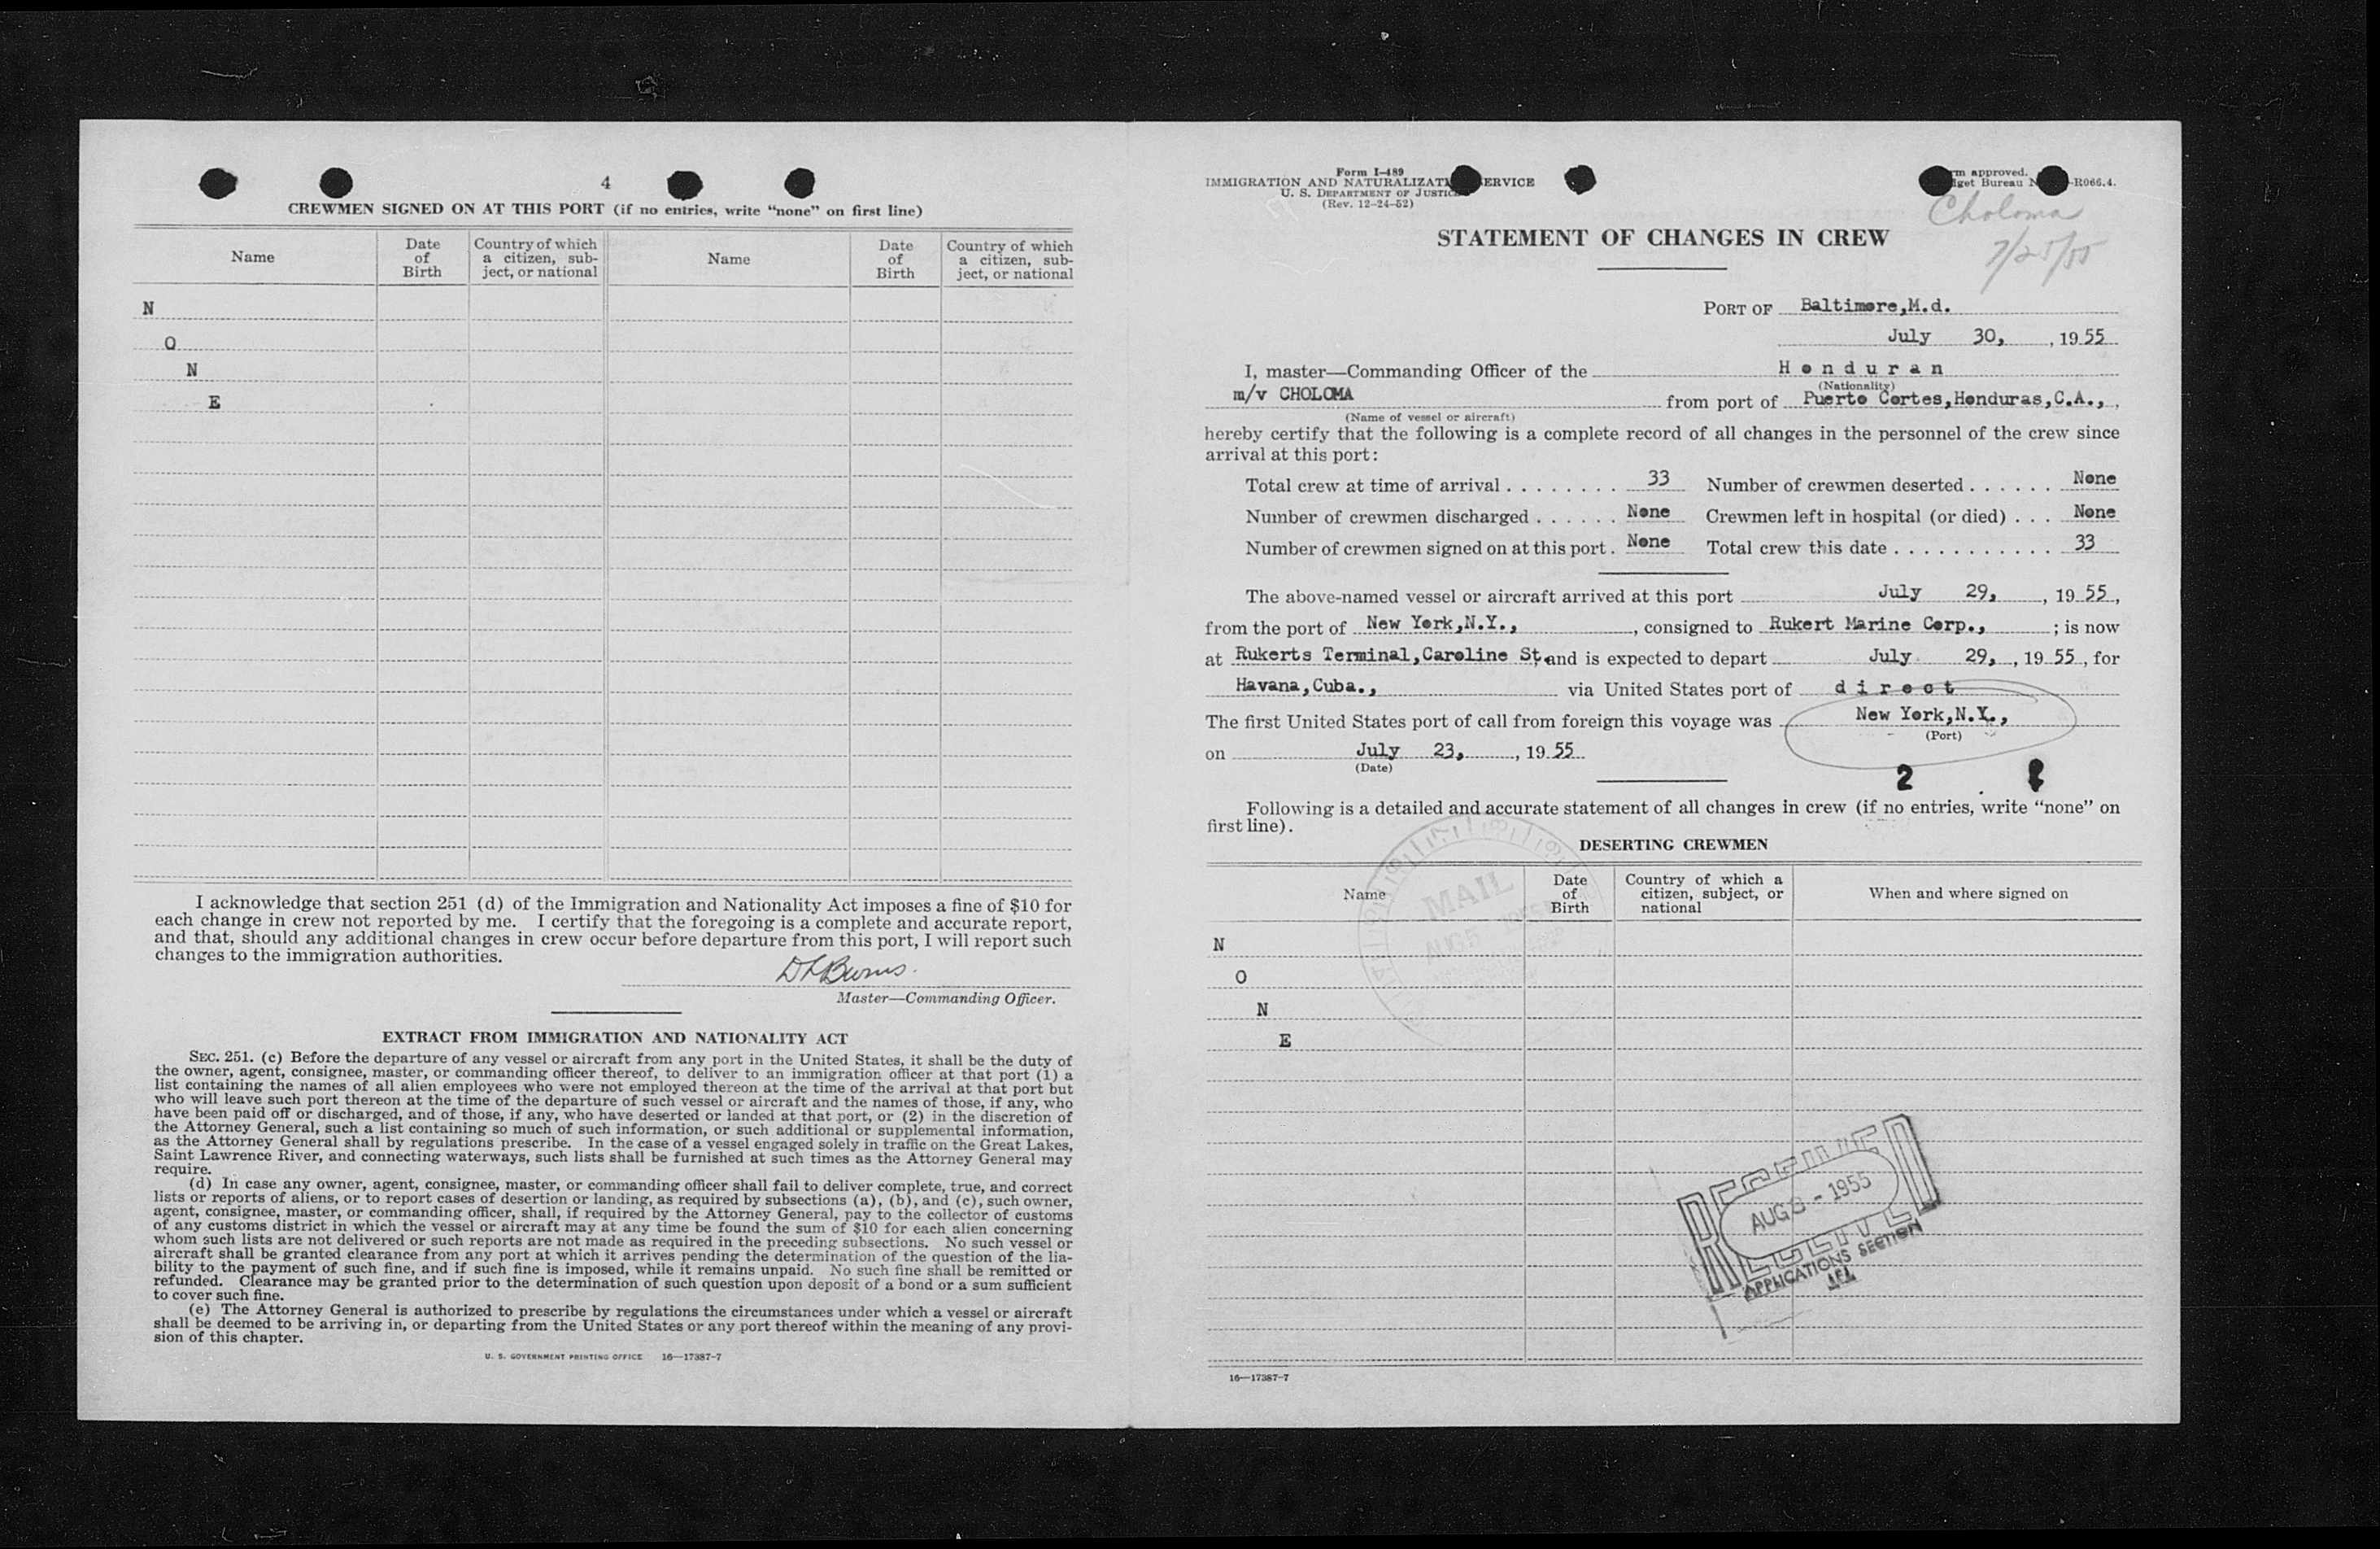 4
CREWMEN SIGNED ON AT THIS PORT (if no entries, write “none” on first line)
Name Date of Birth Country of which a citizen, sub- ject, or national Name Date of Birth Country of which a citizen, sub- ject, or national
N
O
N
E
I acknowledge that section 251 (d) of the Immigration and Nationality Act imposes a fine of $10 for
each change in crew not reported by me. I certify that the foregoing is a complete and accurate report,
and that, should any additional changes in crew occur before departure from this port, I will report such
changes to the immigration authorities.
D L Burns.
Master—Commanding Officer.
EXTRACT FROM IMMIGRATION AND NATIONALITY ACT
SEC. 251. (c) Before the departure of any vessel or aircraft from any port in the United States, it shall be the duty of
the owner, agent, consignee, master, or commanding officer thereof, to deliver to an immigration officer at that port (1) a
list containing the names of all alien employees who were not employed thereon at the time of the arrival at that port but
who will leave such port thereon at the time of the departure of such vessel or aircraft and the names of those, if any, who
have been paid off or discharged, and of those, if any, who have deserted or landed at that port, or (2) in the discretion of
the Attorney General, such a list containing so much of such information, or such additional or supplemental information,
as the Attorney General shall by regulations prescribe. In the case of a vessel engaged solely in traffic on the Great Lakes,
Saint Lawrence River, and connecting waterways, such lists shall be furnished at such times as the Attorney General may
require.
(d) In case any owner, agent, consignee, master, or commanding officer shall fail to deliver complete, true, and correct
lists or reports of aliens, or to report cases of desertion or landing, as required by subsections (a), (b), and (c), such owner,
agent, consignee, master, or commanding officer, shall, if required by the Attorney General, pay to the collector of customs
of any customs district in which the vessel or aircraft may at any time be found the sum of $10 for each alien concerning
whom such lists are not delivered or such reports are not made as required in the preceding subsections. No such vessel or
aircraft shall be granted clearance from any port at which it arrives pending the determination of the question of the lia-
bility to the payment of such fine, and if such fine is imposed, while it remains unpaid. No such fine shall be remitted or
refunded. Clearance may be granted prior to the determination of such question upon deposit of a bond or a sum sufficient
to cover such fine.
(e) The Attorney General is authorized to prescribe by regulations the circumstances under which a vessel or aircraft
shall be deemed to be arriving in, or departing from the United States or any port thereof within the meaning of any provi-
sion of this chapter.
U. S. GOVERNMENT PRINTING OFFICE 16—17387-7
Form I-489
IMMIGRATION AND NATURALIZATI ERVICE
U. S. DEPARTMENT OF JUSTIC
(Rev. 12-24-52)
rm approved.
get Bureau N -R066.4.
Choloma
7/25/55
STATEMENT OF CHANGES IN CREW
PORT OF Baltimore,M.d.
July 30, , 19 55
I, master—Commanding Officer of the H o n d u r a n
(Nationality)
m/v CHOLOMA from port of Puerto Cortes,Honduras,C.A., ,
(Name of vessel or aircraft)
hereby certify that the following is a complete record of all changes in the personnel of the crew since
arrival at this port:
Total crew at time of arrival . . . . . . . . 33 Number of crewmen deserted . . . . . . None
Number of crewmen discharged . . . . . . None Crewmen left in hospital (or died) . . . None
Number of crewmen signed on at this port . None Total crew this date . . . . . . . . . . . 33
The above-named vessel or aircraft arrived at this port July 29, , 19 55 ,
from the port of New York,N.Y., , consigned to Rukert Marine Corp., ; is now
at Rukerts Terminal,Caroline St. and is expected to depart July 29, , 19 55 , for
Havana,Cuba., via United States port of d i r e c t
The first United States port of call from foreign this voyage was New York,N.Y.,
(Port)
on July 23, , 19 55
(Date)
2
Following is a detailed and accurate statement of all changes in crew (if no entries, write “none” on
first line).
DESERTING CREWMEN
Name Date of Birth Country of which a citizen, subject, or national When and where signed on
MAIL
AUG 5
N
O
N
E
RECEIVED
AUG 8 - 1955
RECEIVED
APPLICATIONS SECTION
16—17387-7